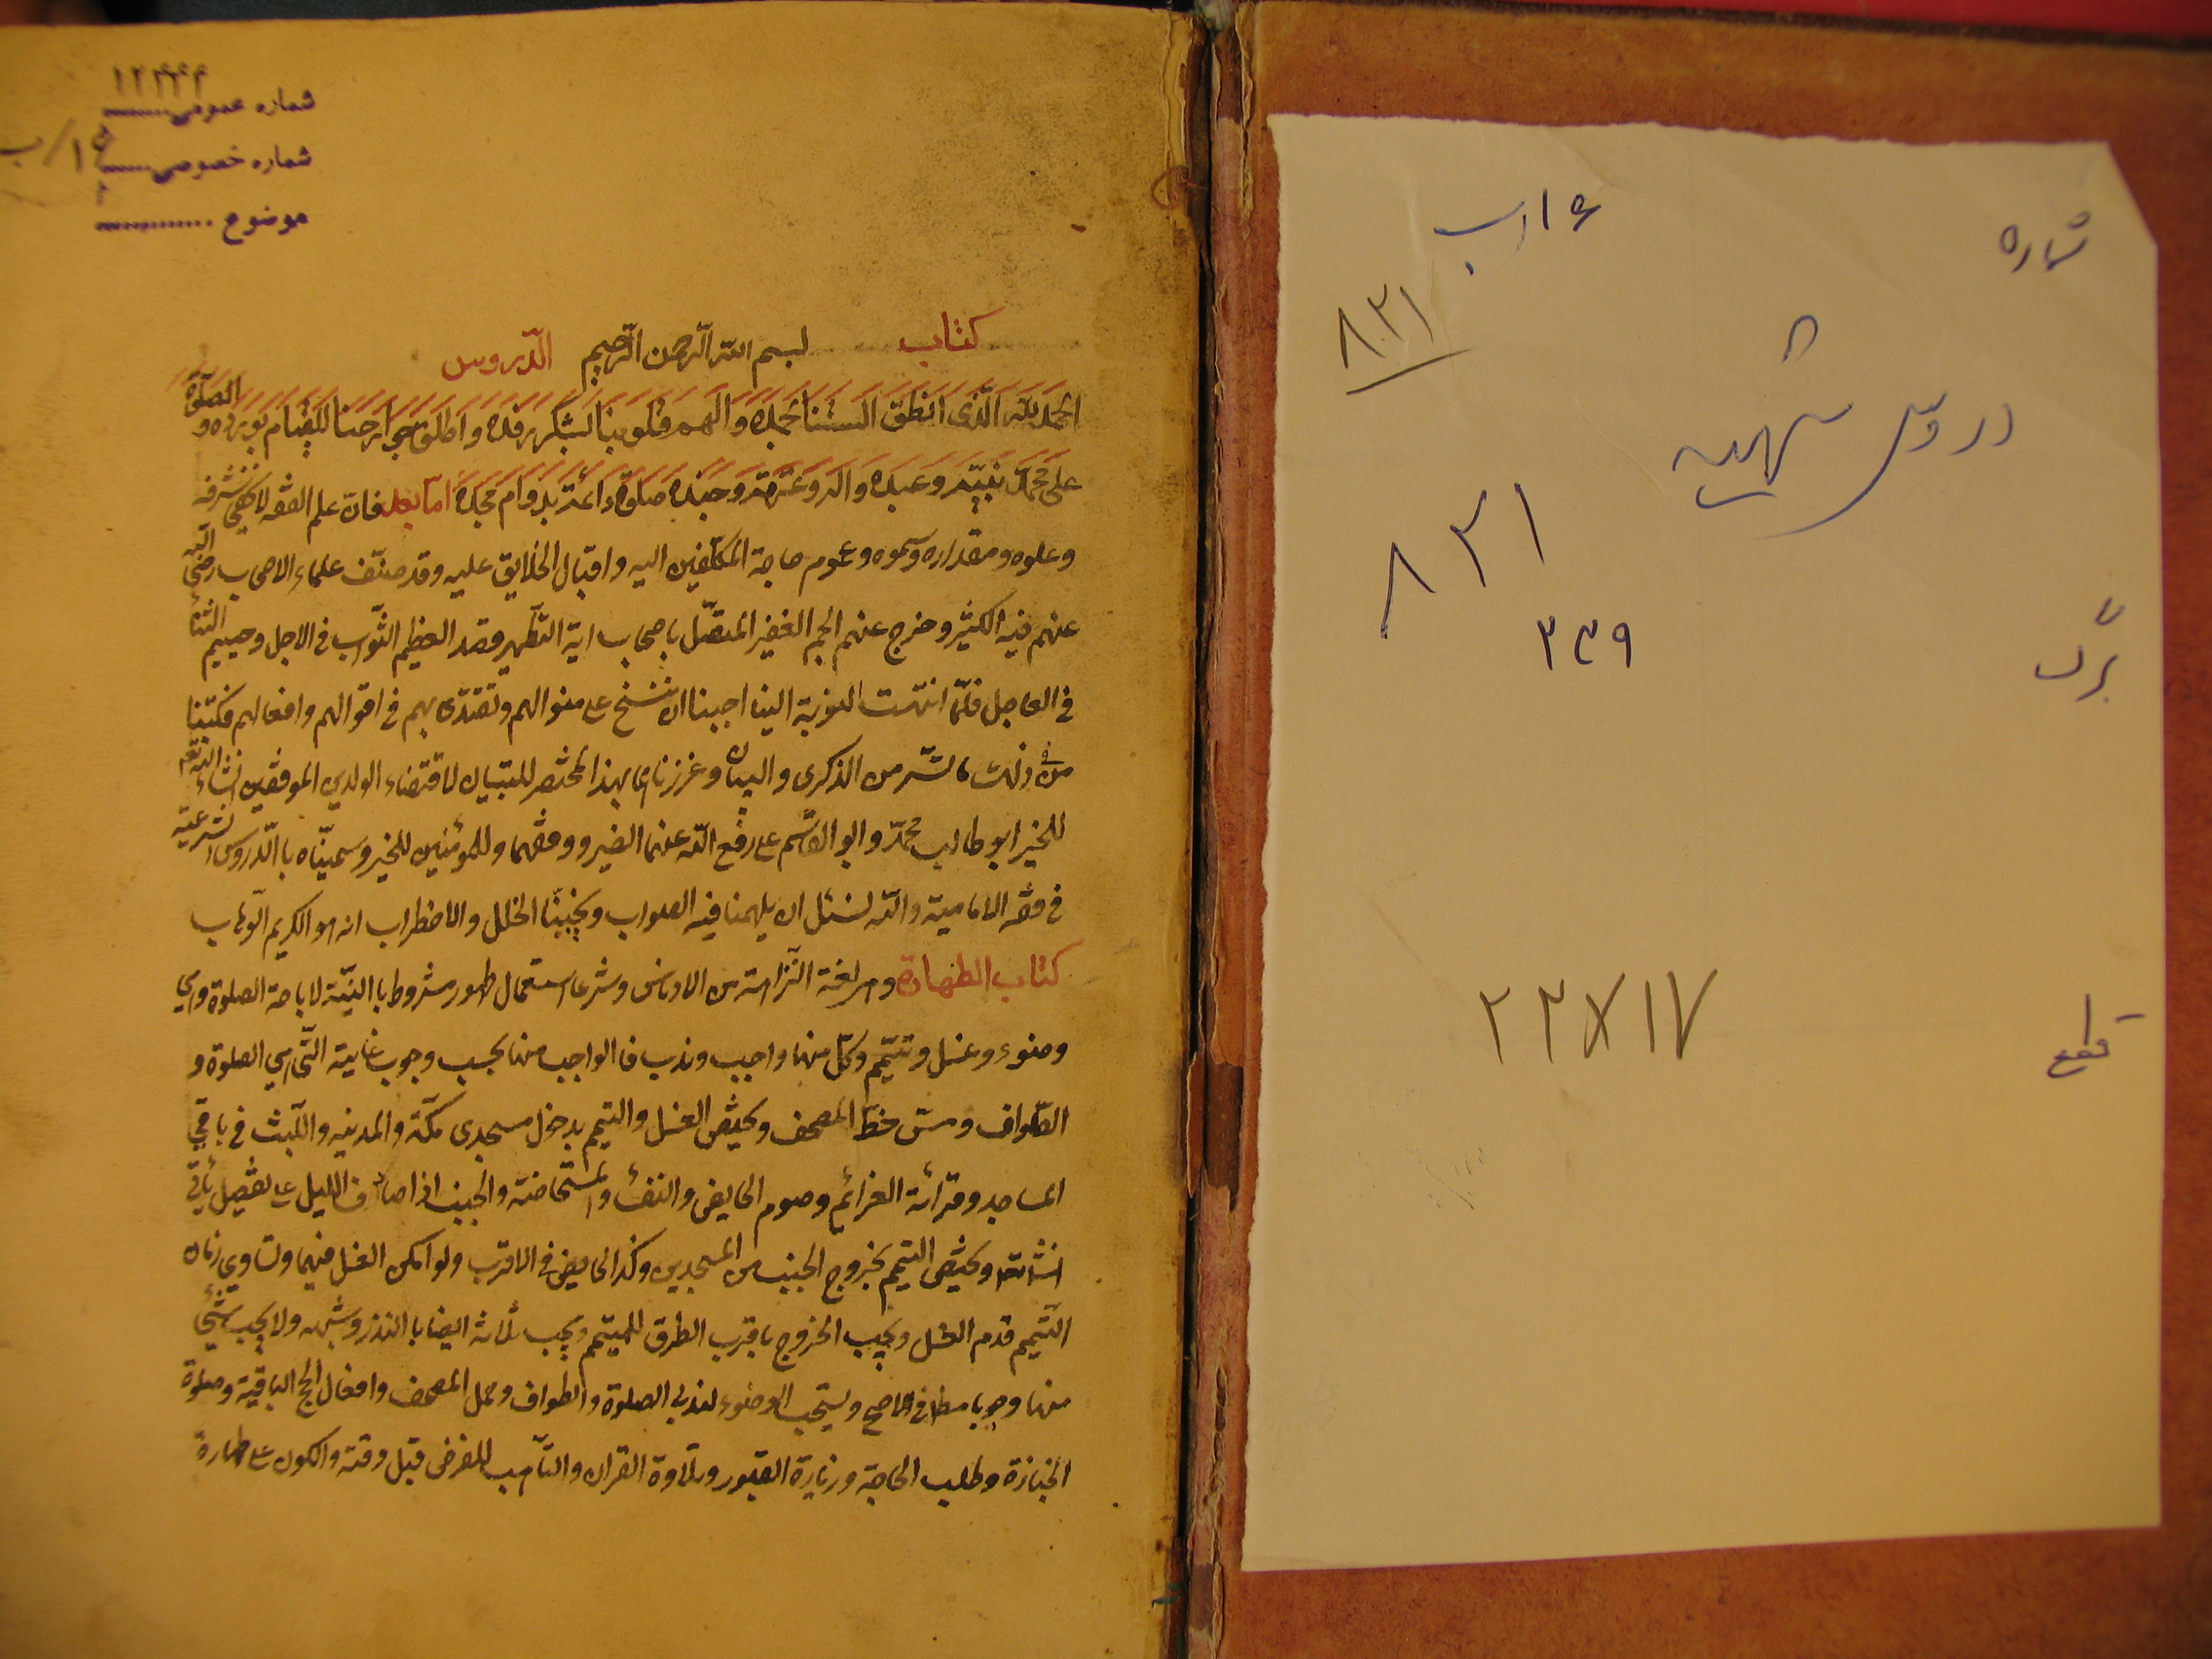 شماره
۱۶ب
۸۲۱
دروس شهید
۸۲۱
برگ
۲۳۹
قطع
۱۷×۲۳
شماره عمومی ۱۲۴۴۴
شماره خصوصی ۱۶/ب
موضوع
کتاب بسم الله الرحمن الرحیم الدروس
الحمد لله الذی انطق السنتنا بحمده والهم قلوبنا لشکر رفده واطلق جوارحنا للقیام بورده والصلوة
علی محمد نبیه وعبده واله وعترته وجنده صلوة دائمة بدوام مجده اما بعد فان علم الفقه لا یخفی شرفه
وعلوه ومقداره وسموه وعموم حاجة المکلفین الیه واقبال الخلایق علیه وقد صنف علماء الاصحاب رضی الله
عنهم فیه الکثیر وخرج عنهم الجم الغفیر المتصل باصحاب ایة التطهیر قصد العظیم الثواب فی الاجل وجسیم الثناء
فی العاجل فلما انتهت النوبة الینا احببنا ان ننسخ علی منوالهم ونقتدی بهم فی اقوالهم وافعالهم فکتبنا
من ذلک ما تیسر من الذکری والبیان وعززناهما بهذا المختصر للتبیان لاقتضاء الولدین الموفقین انشاء الله تعم
للخیر ابو طالب محمد وابو القاسم علی رفع الله عنهما الضیر ووفقهما وللمؤمنین للخیر وسمیناه باالدروس الشرعیة
فی فقه الامامیة والله نسئل ان یلهمنا فیه الصواب ویجنبنا الخلل والاضطراب انه هو الکریم الوهاب
کتاب الطهارة وهی لغة النزاهة من الادناس وشرعا استعمال طهور مشروط باالنیة لاباحة الصلوة وهی
وضوء وغسل وتیمم وکل منها واجب وندب فالواجب منها بحسب وجوب غایته التی هی الصلوة و
الطواف ومس خط المصحف ویختص الغسل والتیمم بدخول مسجدی مکة والمدینه واللبث فی باقی
المساجد وقرائة العزائم وصوم الحایض والنفساء والمستحاضة والجنب اذا صادف اللیل علی تفصیل یأتی
انشاءالله ویختص التیمم بخروج الجنب من المسجدین وکذا الحایض فی الاقرب ولو امکن الغسل فیهما وتساوی زمان
التیمم قدم الغسل ویجب الخروج باقرب الطرق للمتیمم ویجب ثلاثة ایضا باالنذر وشبهه ولا یجب شئ
منها وجوبا مطلقا فی الاصح ویستحب الوضوء لندبی الصلوة والطواف وحمل المصحف وافعال الحج الباقیة وصلوة
الجنازة وطلب الحاجة وزیارة القبور وتلاوة القران والتأهب للفرض قبل وقته والکون علی طهارة